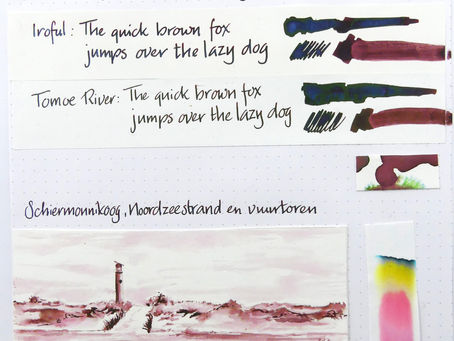 Iroful: The quick brown fox
jumps over the lazy dog
Tomoe River: The quick brown fox
jumps over the lazy dog
Schiermonnikoog, Noordzeestrand en vuurtoren